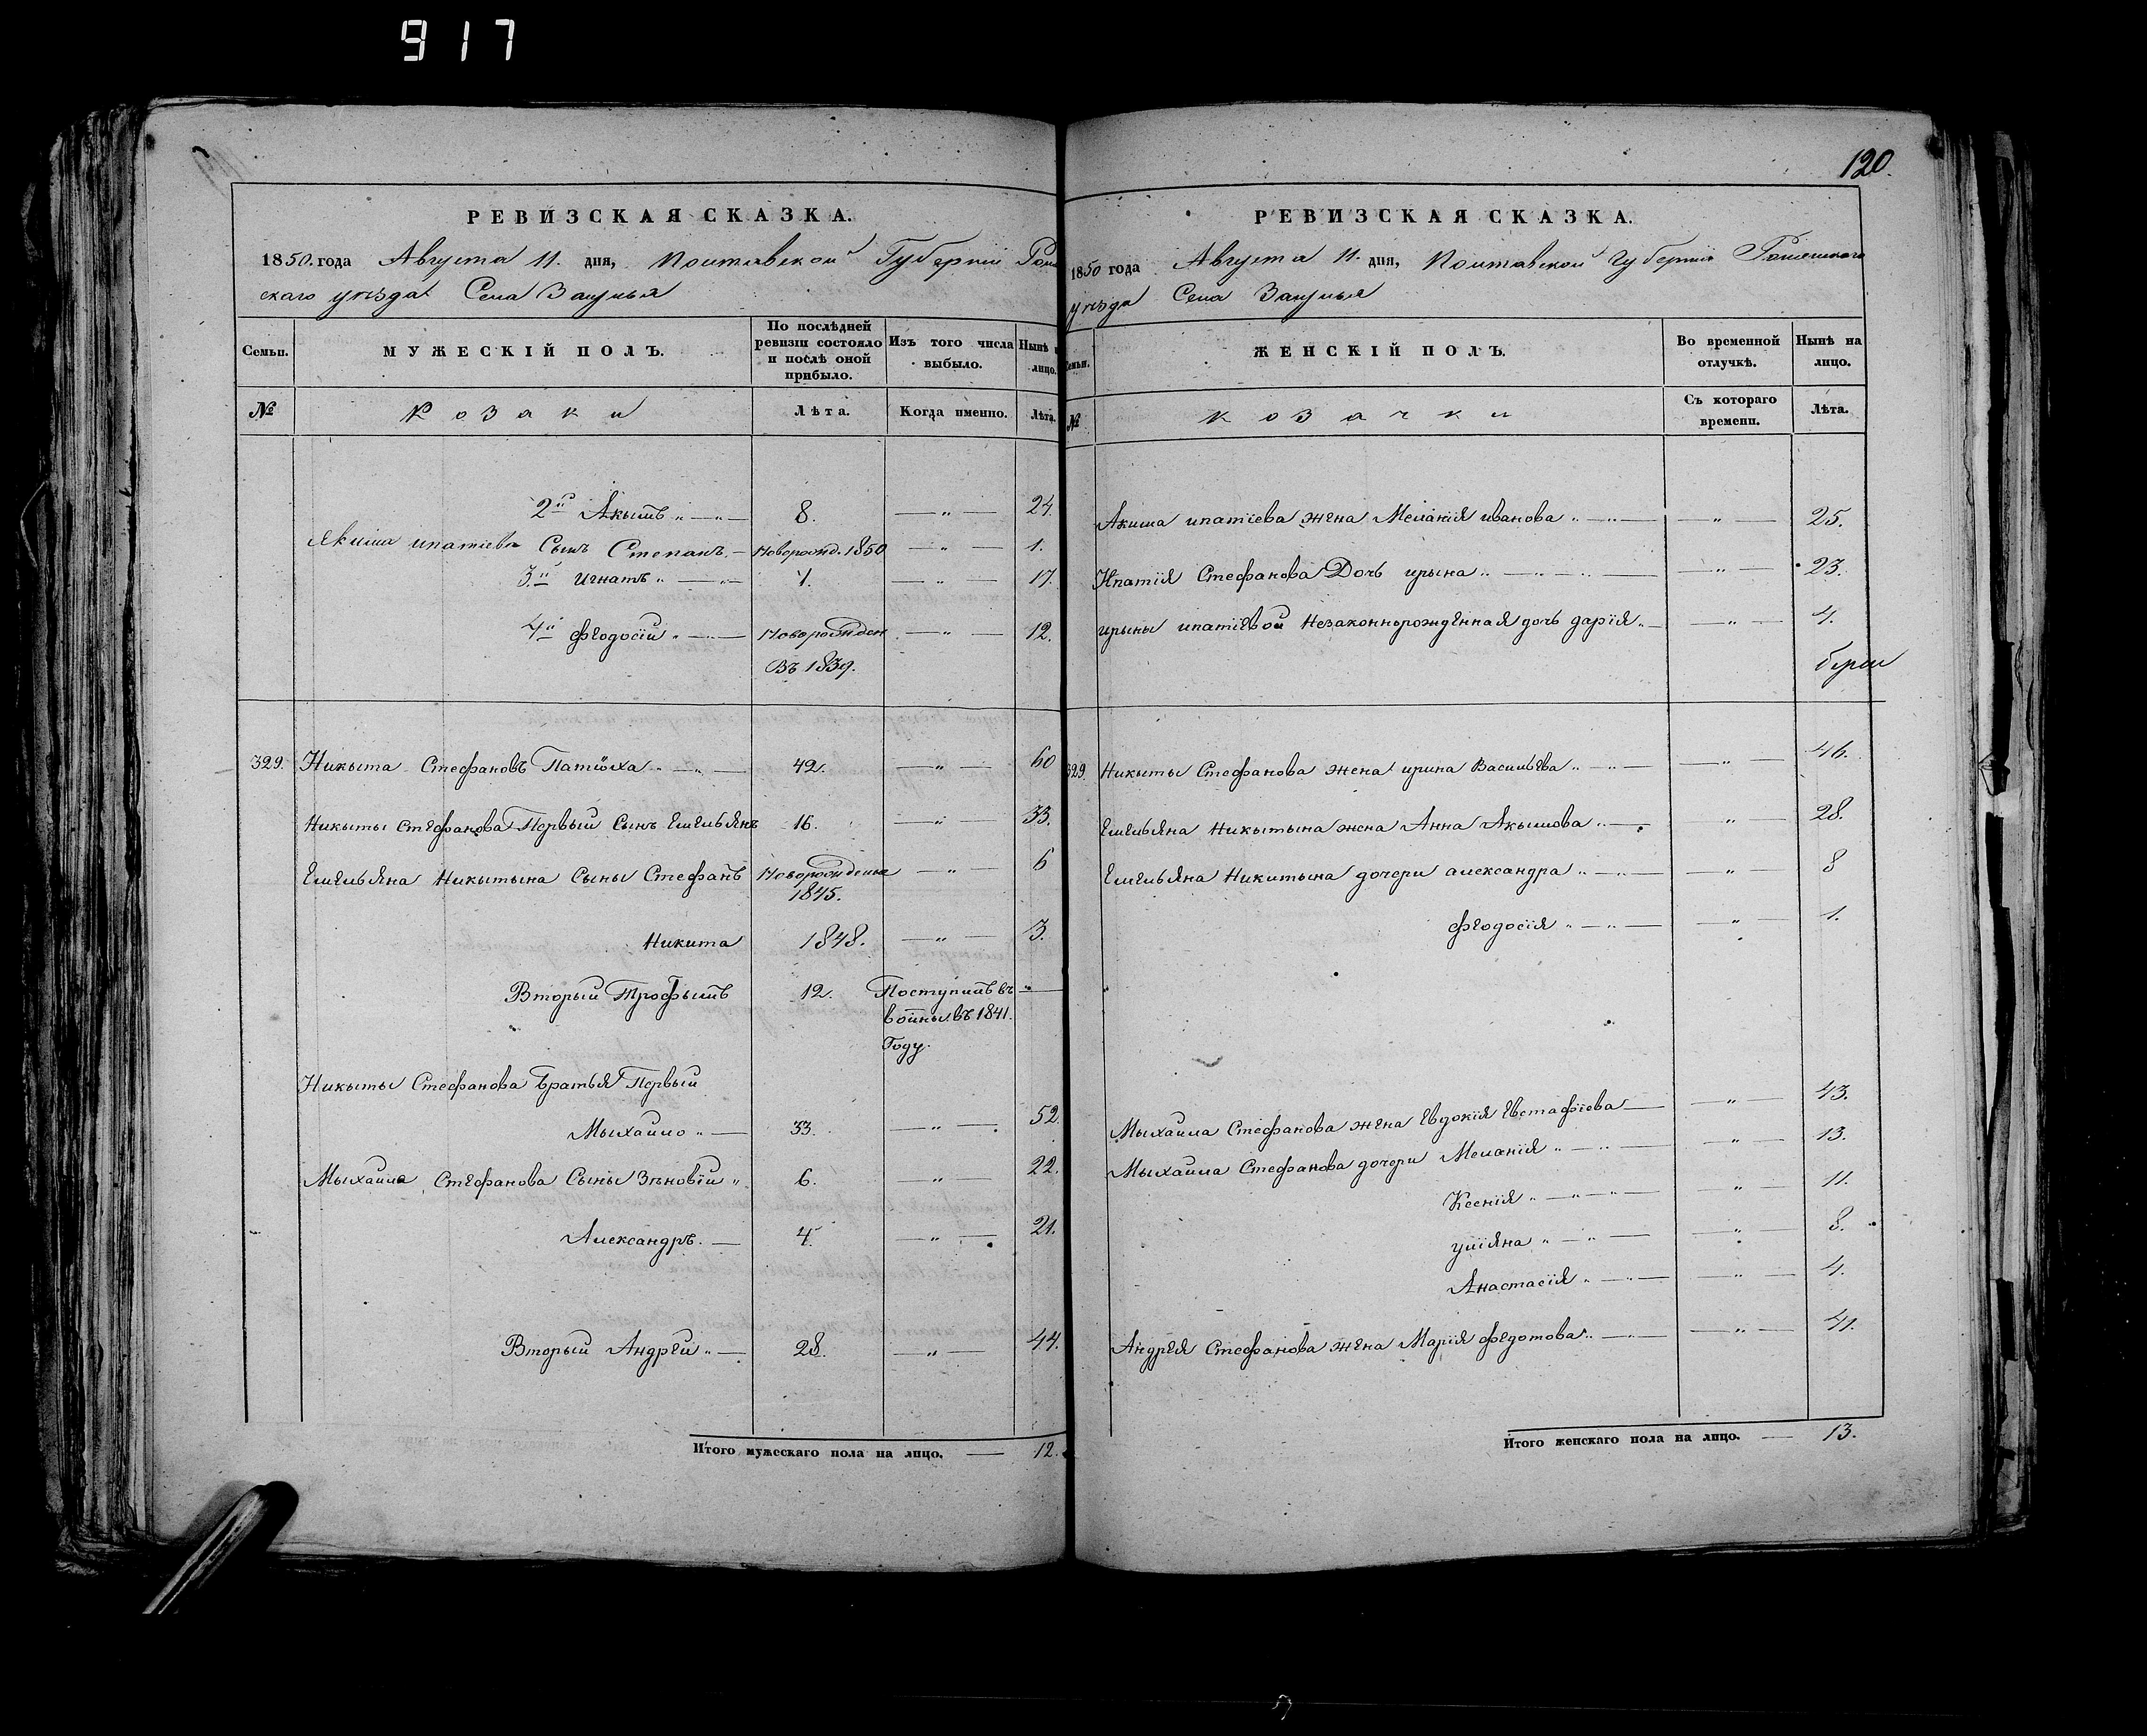 917
120.
РЕВИЗСКАЯ СКАЗКА.
1850. года Августа 11. дня, Полтавской Губерніи Ром
скаго уезда Села Заруцья
Семьи.
МУЖЕСКІЙ ПОЛЪ.
По послѣдней ревизіи состояло и послѣ оной прибыло.
Изъ того числа выбыло.
Нынѣ на лицо.
№
Козаки
Лѣта.
Когда именно.
Лѣта.
2й Акымъ „ — „ — 8. — „ — 24.
Якима ипатіева Сынъ Степанъ. — Новорожд. 1850 — „ — 1.
3й Игнатъ „ — „ — 1. — „ — 17.
4й Феодосій „ — „ — Новорожден — „ — 12.
въ 1839.
329. Никыта Стефановъ „ — „ — 42. — „ — 60
Никыты Стефанова Первый Сынъ Емельянъ 16. — „ — 33.
Емельяна Никытына Сыны Стефанъ Новорожденъ — „ — 6
1845.
Никита 1848. — „ — 3.
Вторый Трофымъ 12. Поступилъ въ „ —
войны въ 1841.
Году.
Никыты Стефанова братья Первый
Мыхайло „ — 33. — „ — 52
Мыхайла Стефанова Сыны Зѣновій „ 6. — „ — 22.
Александръ. — 4. — „ — 21.
Вторый Андрей „ — 28. — „ — 44.
Итого мужескаго пола на лицо. — 12.
РЕВИЗСКАЯ СКАЗКА.
1850 года Августа 11. дня, Полтавской Губерніи Роменскаго
уезда Села Заруцья
Семьи.
ЖЕНСКІЙ ПОЛЪ.
Во временной отлучкѣ.
Нынѣ на лицо.
№
Козачки
Съ котораго времени.
Лѣта.
Акима ипатіева жена Меланія иванова „ — „ — — „ — 25.
Ипатія Стефанова Дочь ирына „ — „ — „ — — „ — 23.
ирыны ипатіевой Незаконнорожденная дочь дарія „ — — „ — 4.
329. Никыты Стефанова жена ирина Васильева „ — „ — — „ — 46.
Емельяна Никытына жена Анна Акымова „ — — „ — 28.
Емельяна Никитына дочери александра „ — „ — — „ — 8
феодосія „ — „ — — „ — 1.
Мыхайла Стефанова жена Евдокія Евстафіева — — „ — 43.
Мыхайла Стефанова дочери Меланія „ — „ — — „ — 13.
Ксенія „ — „ — — „ — 11.
уліяна „ — „ — — „ — 8.
Анастасія „ — „ — — „ — 4.
Андрея Стефанова жена Марія федотова „ — „ — — „ — 41.
Итого женскаго пола на лицо. — 13.